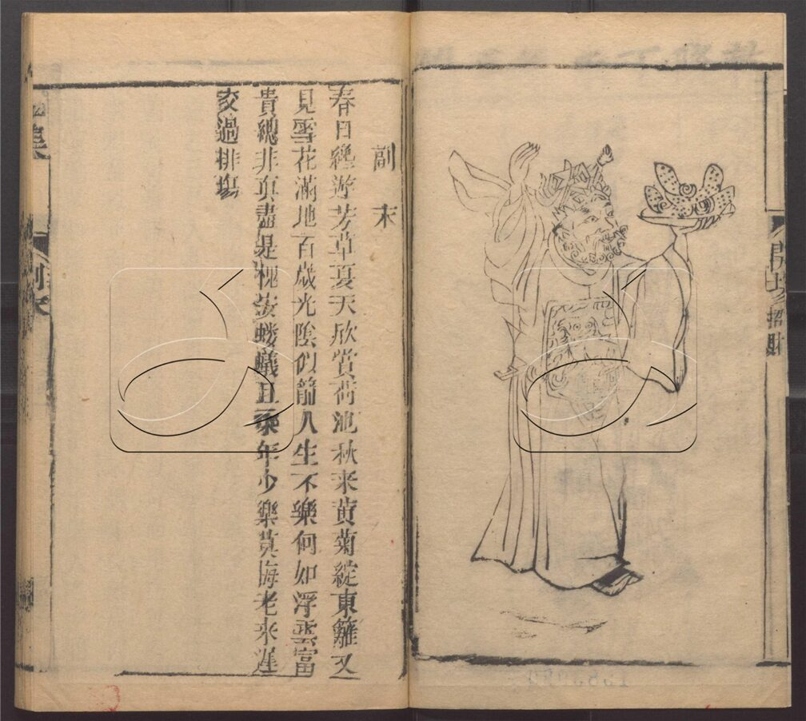 開塲 招財
副末
春日纔遊芳草夏天欣賞荷池秋来黄菊綻東籬又
見雪花滿地百歲光陰似箭人生不樂何如浮雲富
貴總非真盡是槐安螻蟻且乘年少樂莫悔老来遲
交過排塲
副末